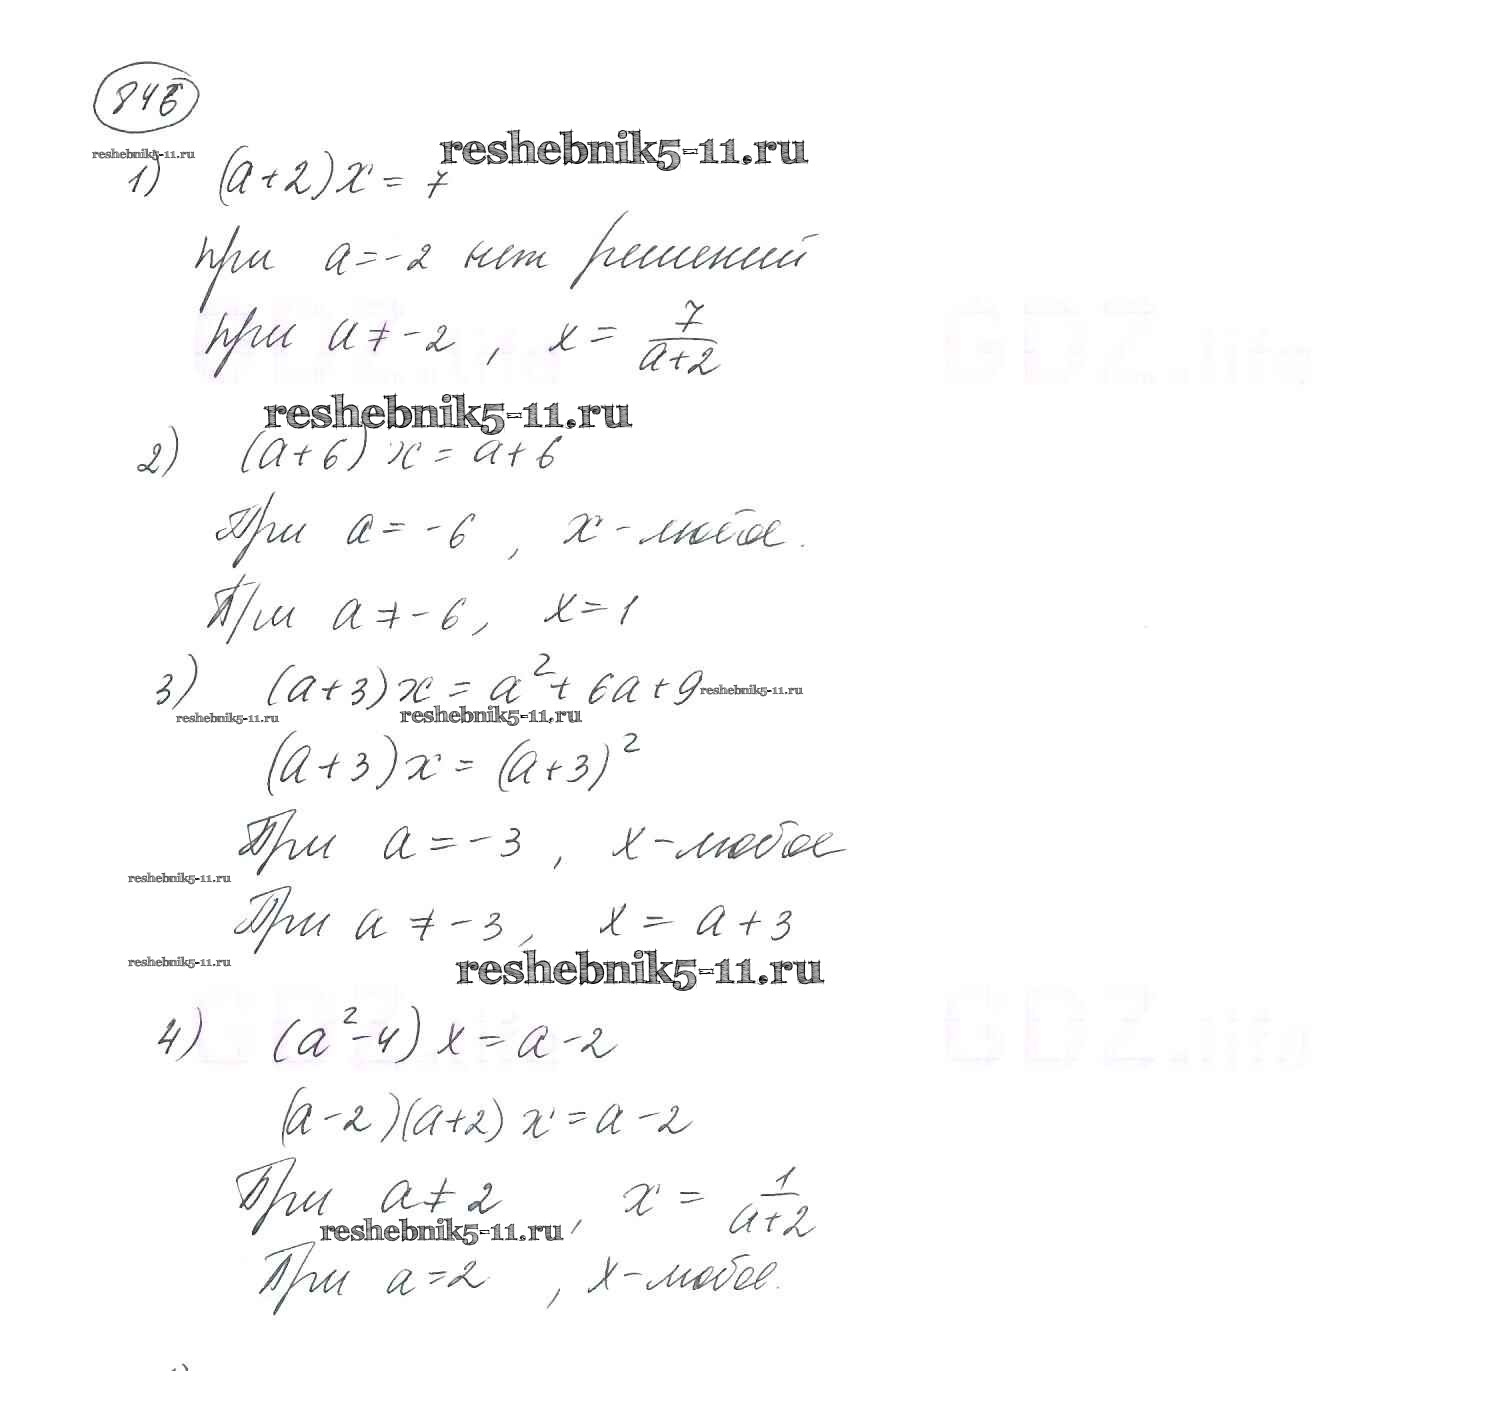 846
reshebnik5-11.ru
reshebnik5-11.ru
1) (a+2)x = 7
при a=-2 нет решений
при a≠-2, x = 7/(a+2)
GDZ.life GDZ.life
reshebnik5-11.ru
2) (a+6)x = a+6
При a = -6, x-любое.
При a≠-6, x=1
3) (a+3)x = a²+6a+9 reshebnik5-11.ru
reshebnik5-11.ru reshebnik5-11.ru
(a+3)x = (a+3)²
При a = -3, x-любое
reshebnik5-11.ru
При a ≠ -3, x = a+3
reshebnik5-11.ru reshebnik5-11.ru
4) (a²-4)x = a-2
GDZ.life GDZ.life
(a-2)(a+2)x = a-2
При a≠2, x = 1/(a+2)
reshebnik5-11.ru
При a=2, x-любое.